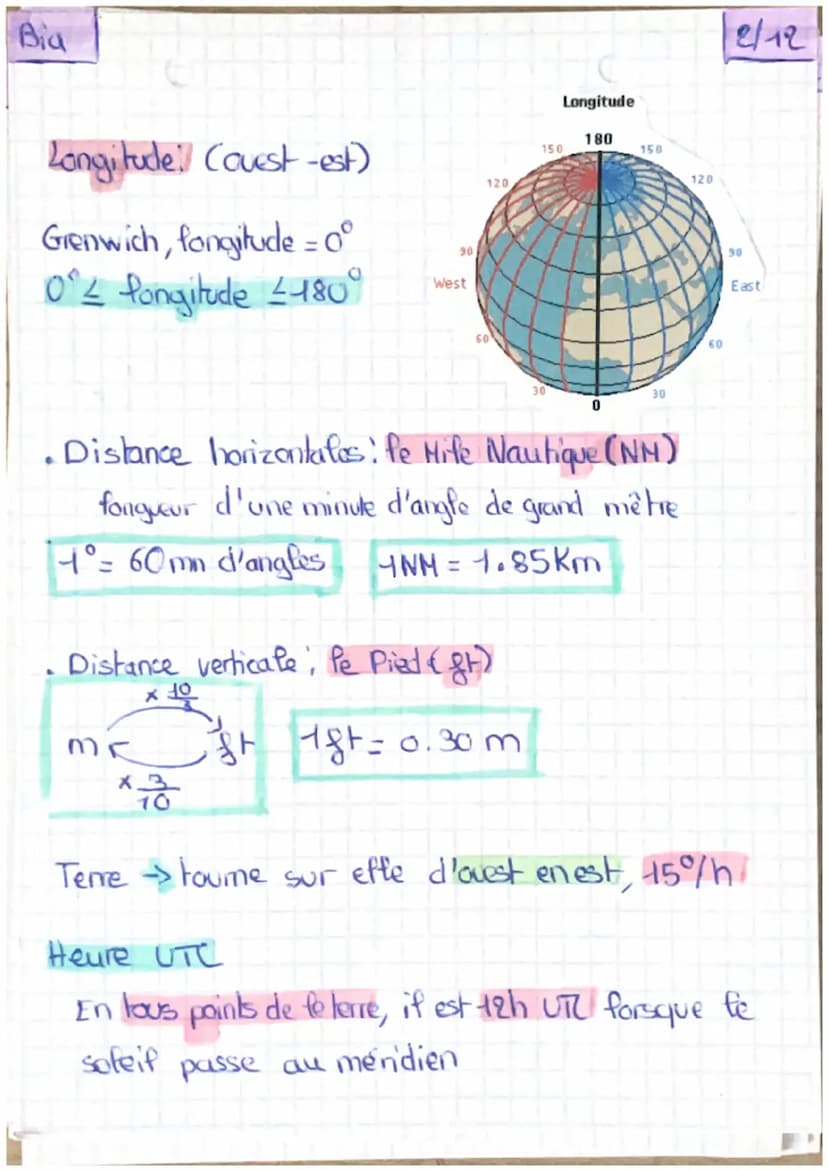 Bia
2/12
Longitude
180
150
150
120
120
90
90
West
East
60
60
30
30
0
Longitude: (ouest-est)
Grenwich, longitude = 0°
0° ≤ longitude ≤ 180°
. Distance horizontales: le Mile Nautique (NM)
longueur d'une minute d'angle de grand mètre
1° = 60mn d'angles
1NM = 1.85Km
. Distance verticale: le Pied (ft)
x 10/3
m ft
x 3/10
1ft = 0.30 m
Terre → tourne sur elle d'ouest en est, 15°/h
Heure UTC
En tous points de le terre, il est 12h UTC lorsque le
soleil passe au méridien